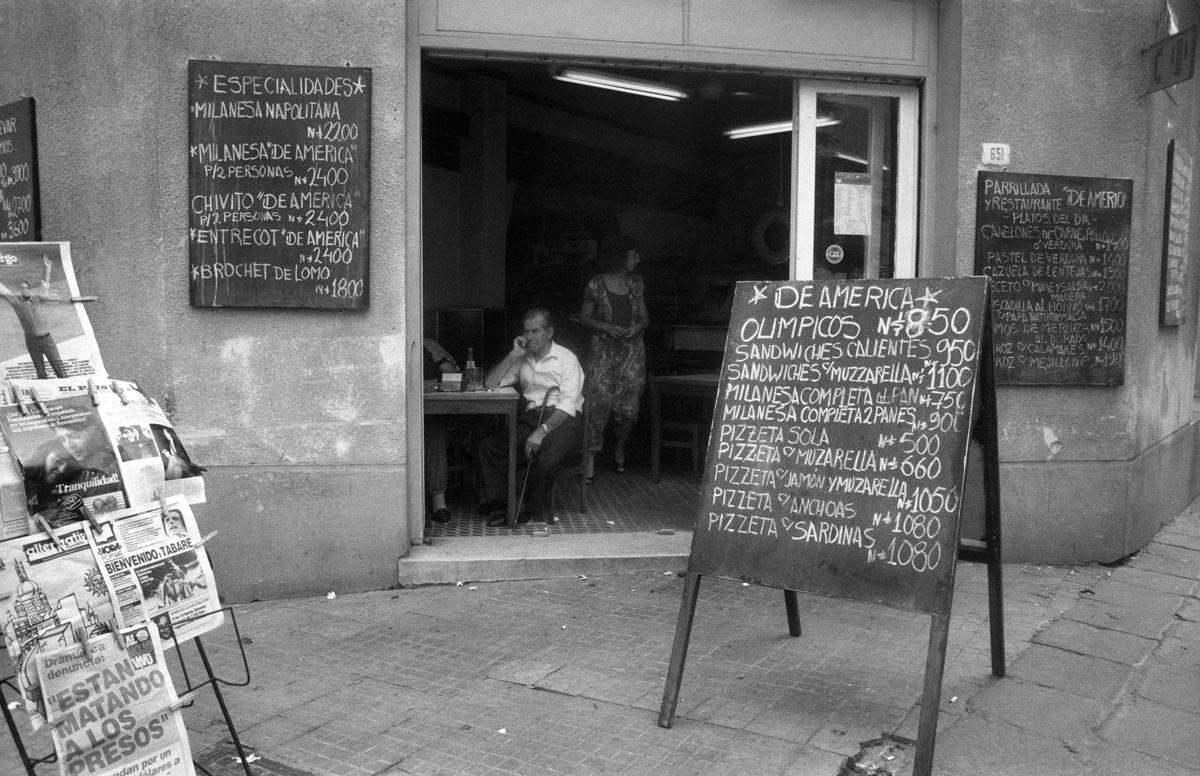 EVAR
MOS.
3600
* ESPECIALIDADES *
*MILANESA NAPOLITANA
N$2200
*MILANESA "DE AMERICA"
P/2 PERSONAS N$2400
CHIVITO "DE AMERICA"
P/2 PERSONAS N$2400
*ENTRECOT "DE AMERICA"
N$2400
*BROCHET DE LOMO
N$1800
651
PARRILLADA "DE AMERIC
Y RESTAURANTE
-PLATOS DEL DIA-
CANELONES DE CARNE, POLLO
O' VERDURA N$1400
PASTEL DE VERDURA N$1400
CAZUELA DE LENTEJAS N$1300
CETO C/ PURE Y SALSA
MADERA
SCADILLA AL HORNO N$1700
C/PAPA NATURAL Y SALSA
MOS DE MERLUZA N$1500
AL DORADO
ROZ C/ CALAMARES N$1400
ROZ C/ MEJILLONES
* DE AMERICA *
OLIMPICOS N$850
SANDWICHES CALIENTES 950
SANDWICHES C/ MUZZARELLA N$1100
MILANESA COMPLETA AL PAN N$750
MILANESA COMPLETA 2 PANES N$900
PIZZETA SOLA N$500
PIZZETA C/ MUZARELLA N$660
PIZZETA C/ JAMÓN Y MUZARELLA N$1050
PIZZETA C/ ANCHOAS N$1080
PIZZETA C/ SARDINAS N$1080
rgo
EL PAIS
Tranquilidad
alternativa
LA HORA
POPULAR
BIENVENIDO, TABARE
Dramática
denuncia:
"ESTAN
MATANDO
A LOS
PRESOS"
dan por un
dólares a